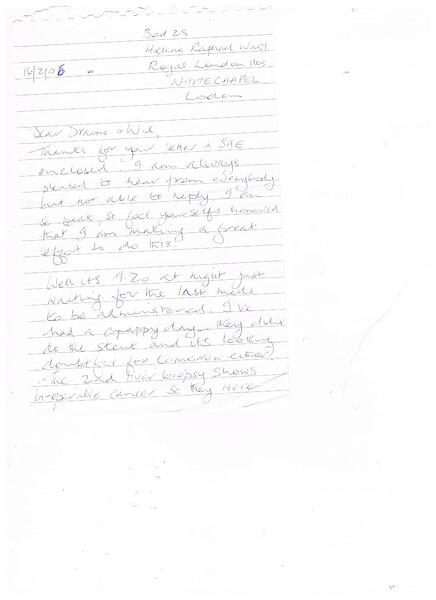 Bed 25
Helena Raphael Ward
16/2/06 Royal London Hos
WHITECHAPEL
London
Dear & Wil,
Thanks for your letter & SAE
enclosed. I am always
pleased to hear from everybody
but not able to reply. I am
so weak so feel yourselfs honoured
that I am making a great
effort to do this.
Well its 9.20 at night just
waiting for the last meds
to be administered. I've
had a crappy day - they didn't
do the stent and its looking
doubtful for tomorrow either.
The 2nd liver biopsy shows
inoperable cancer so they were